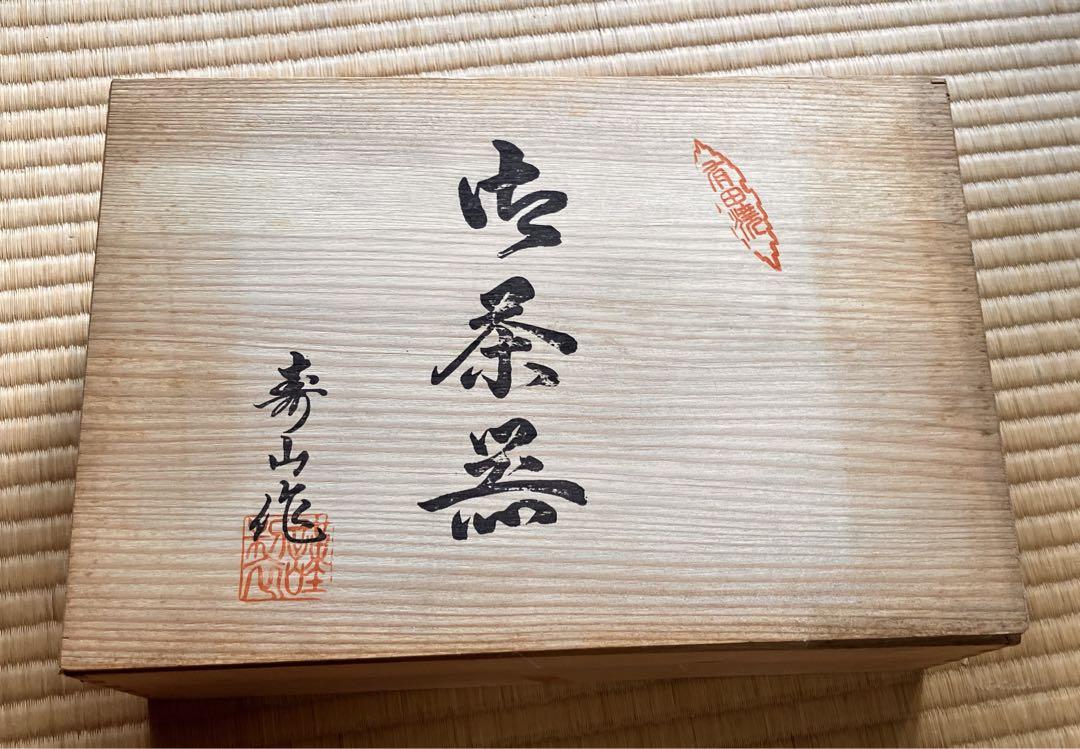 有田焼
御茶器
寿山作